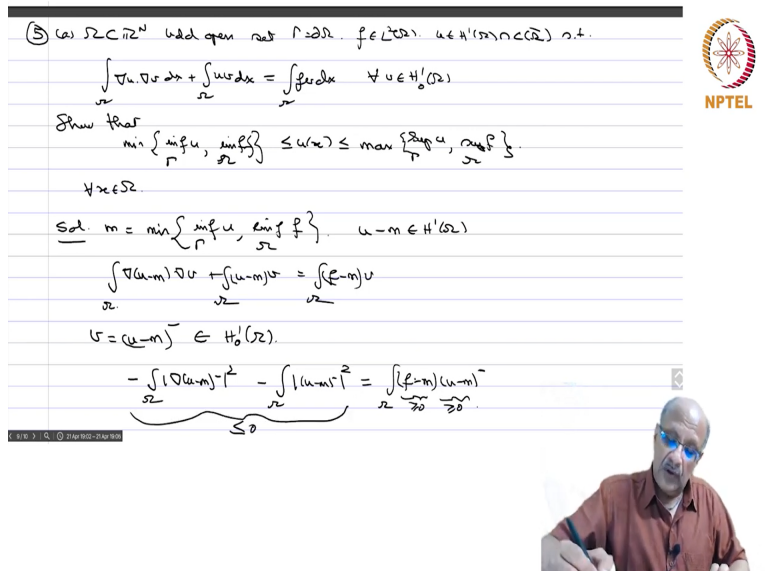 ⑤ (a) Ω ⊂ ℝᴺ bdd open set Γ = ∂Ω. f ∈ L²(Ω). u ∈ H¹(Ω) ∩ C(Ω̄) s.t.
∫_Ω ∇u.∇v dx + ∫_Ω uv dx = ∫_Ω fv dx ∀ v ∈ H₀¹(Ω)
Show that
min { inf_Γ u, einf_Ω f } ≤ u(x) ≤ max { sup_Γ u, esup_Ω f }.
∀x ∈ Ω.
Sol. m = min { inf_Γ u, einf_Ω f }. u-m ∈ H¹(Ω)
∫_Ω ∇(u-m) ∇v + ∫_Ω (u-m)v = ∫_Ω (f-m)v
v = (u-m)⁻ ∈ H₀¹(Ω).
- ∫_Ω |∇(u-m)⁻|² - ∫_Ω |(u-m)⁻|² = ∫_Ω (f-m) (u-m)⁻
≥0 ≥0
≤0
NPTEL
9/10 21 Apr 19:02 - 21 Apr 19:06